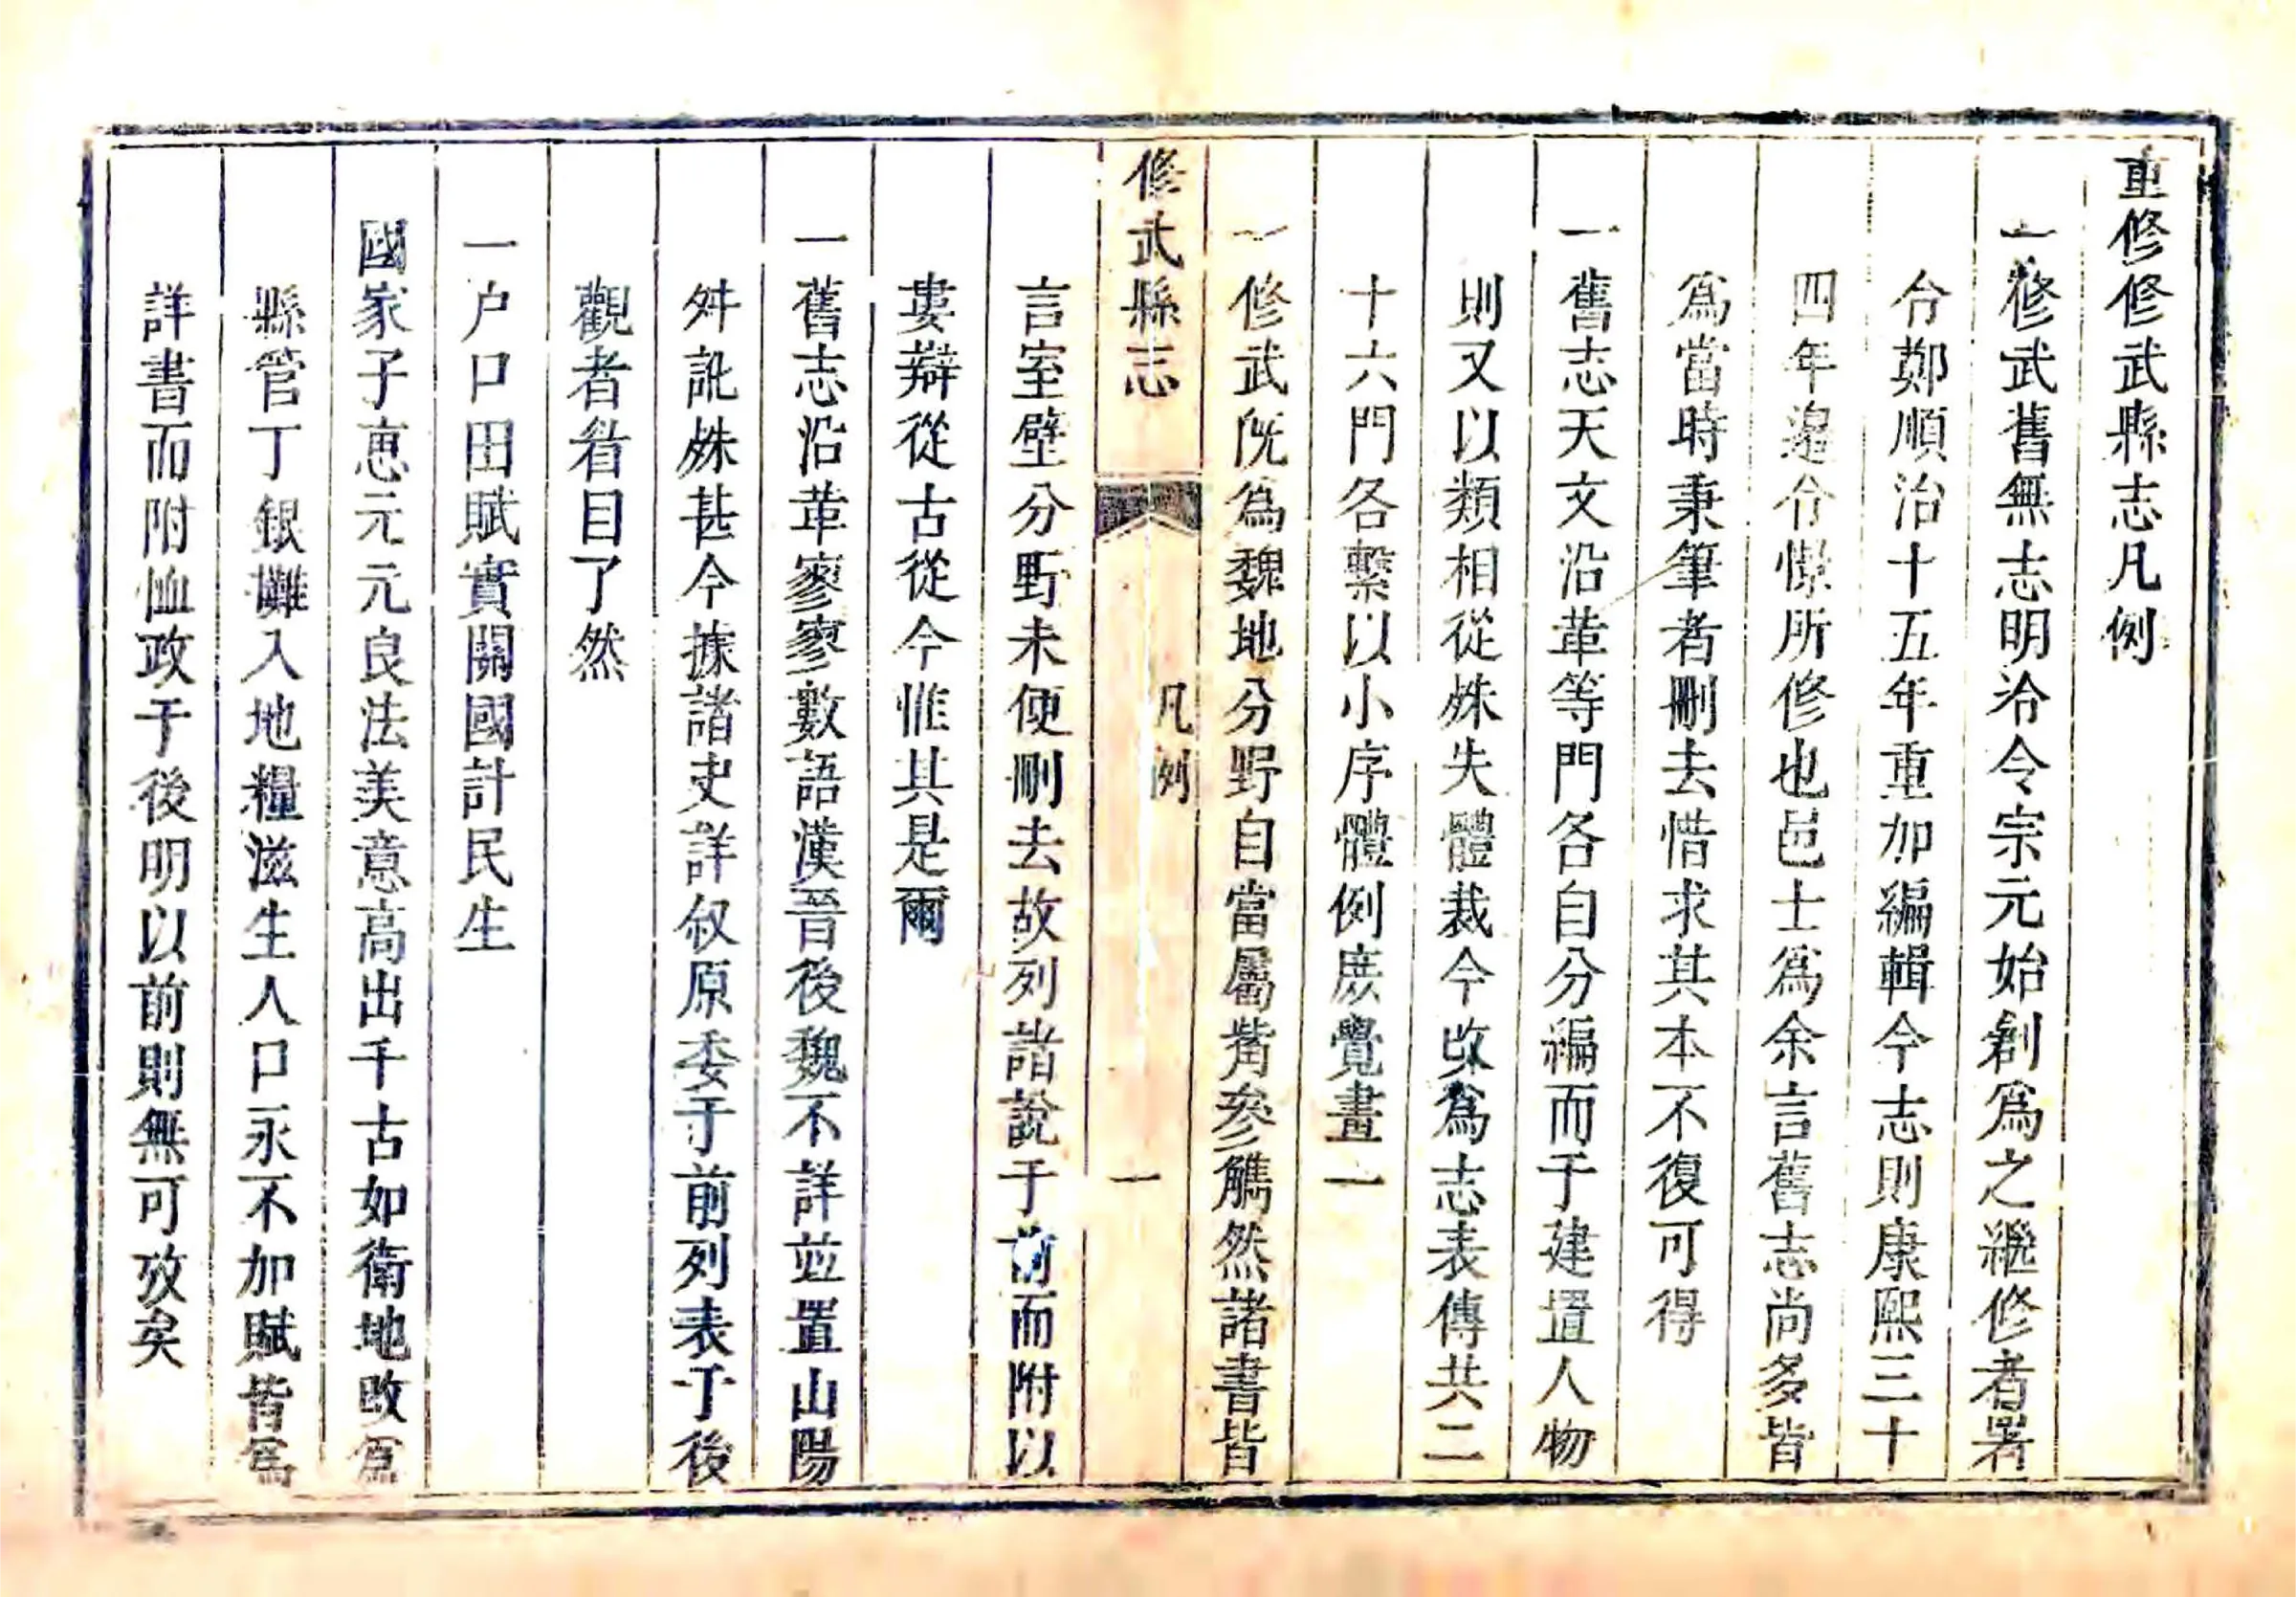 重修修武縣志凡例
一修武舊無志明冷令宗元始創爲之繼修者署
令鄭順治十五年重加編輯今志則康熙三十
四年邊令憬所修也邑士爲余言舊志尚多皆
爲當時秉筆者刪去惜求其本不復可得
一舊志天文沿革等門各自分編而于建置人物
則又以類相從殊失體裁今改爲志表傳共二
十六門各繫以小序體例庻覺畫一
一修武旣爲魏地分野自當屬觜參觿然諸書皆
修武縣志 凡例 一
言室壁分野未便刪去故列諸說于前而附以
婁辯從古從今惟其是爾
一舊志沿革寥寥數語漢晉後魏不詳並置山陽
舛訛殊甚今據諸史詳叙原委于前列表于後
觀者眉目了然
一户口田賦實關國計民生
國家子惠元元良法美意高出千古如衛地改爲
縣管丁銀攤入地糧滋生人口永不加賦皆爲
詳書而附恤政于後明以前則無可攷矣